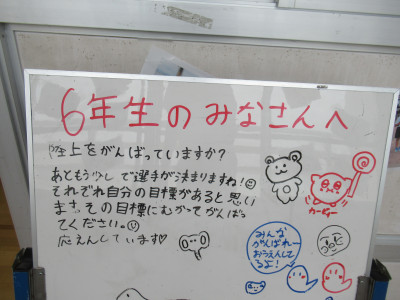 6年生のみなさんへ
陸上をがんばっていますか?
あともう少しで選手が決まりますね!
それぞれ自分の目標があると思い
ます。その目標にむかってがんばっ
てください。
応えんしています♡
カービィ
みんな
がんばれー
おうえんして
るよ!